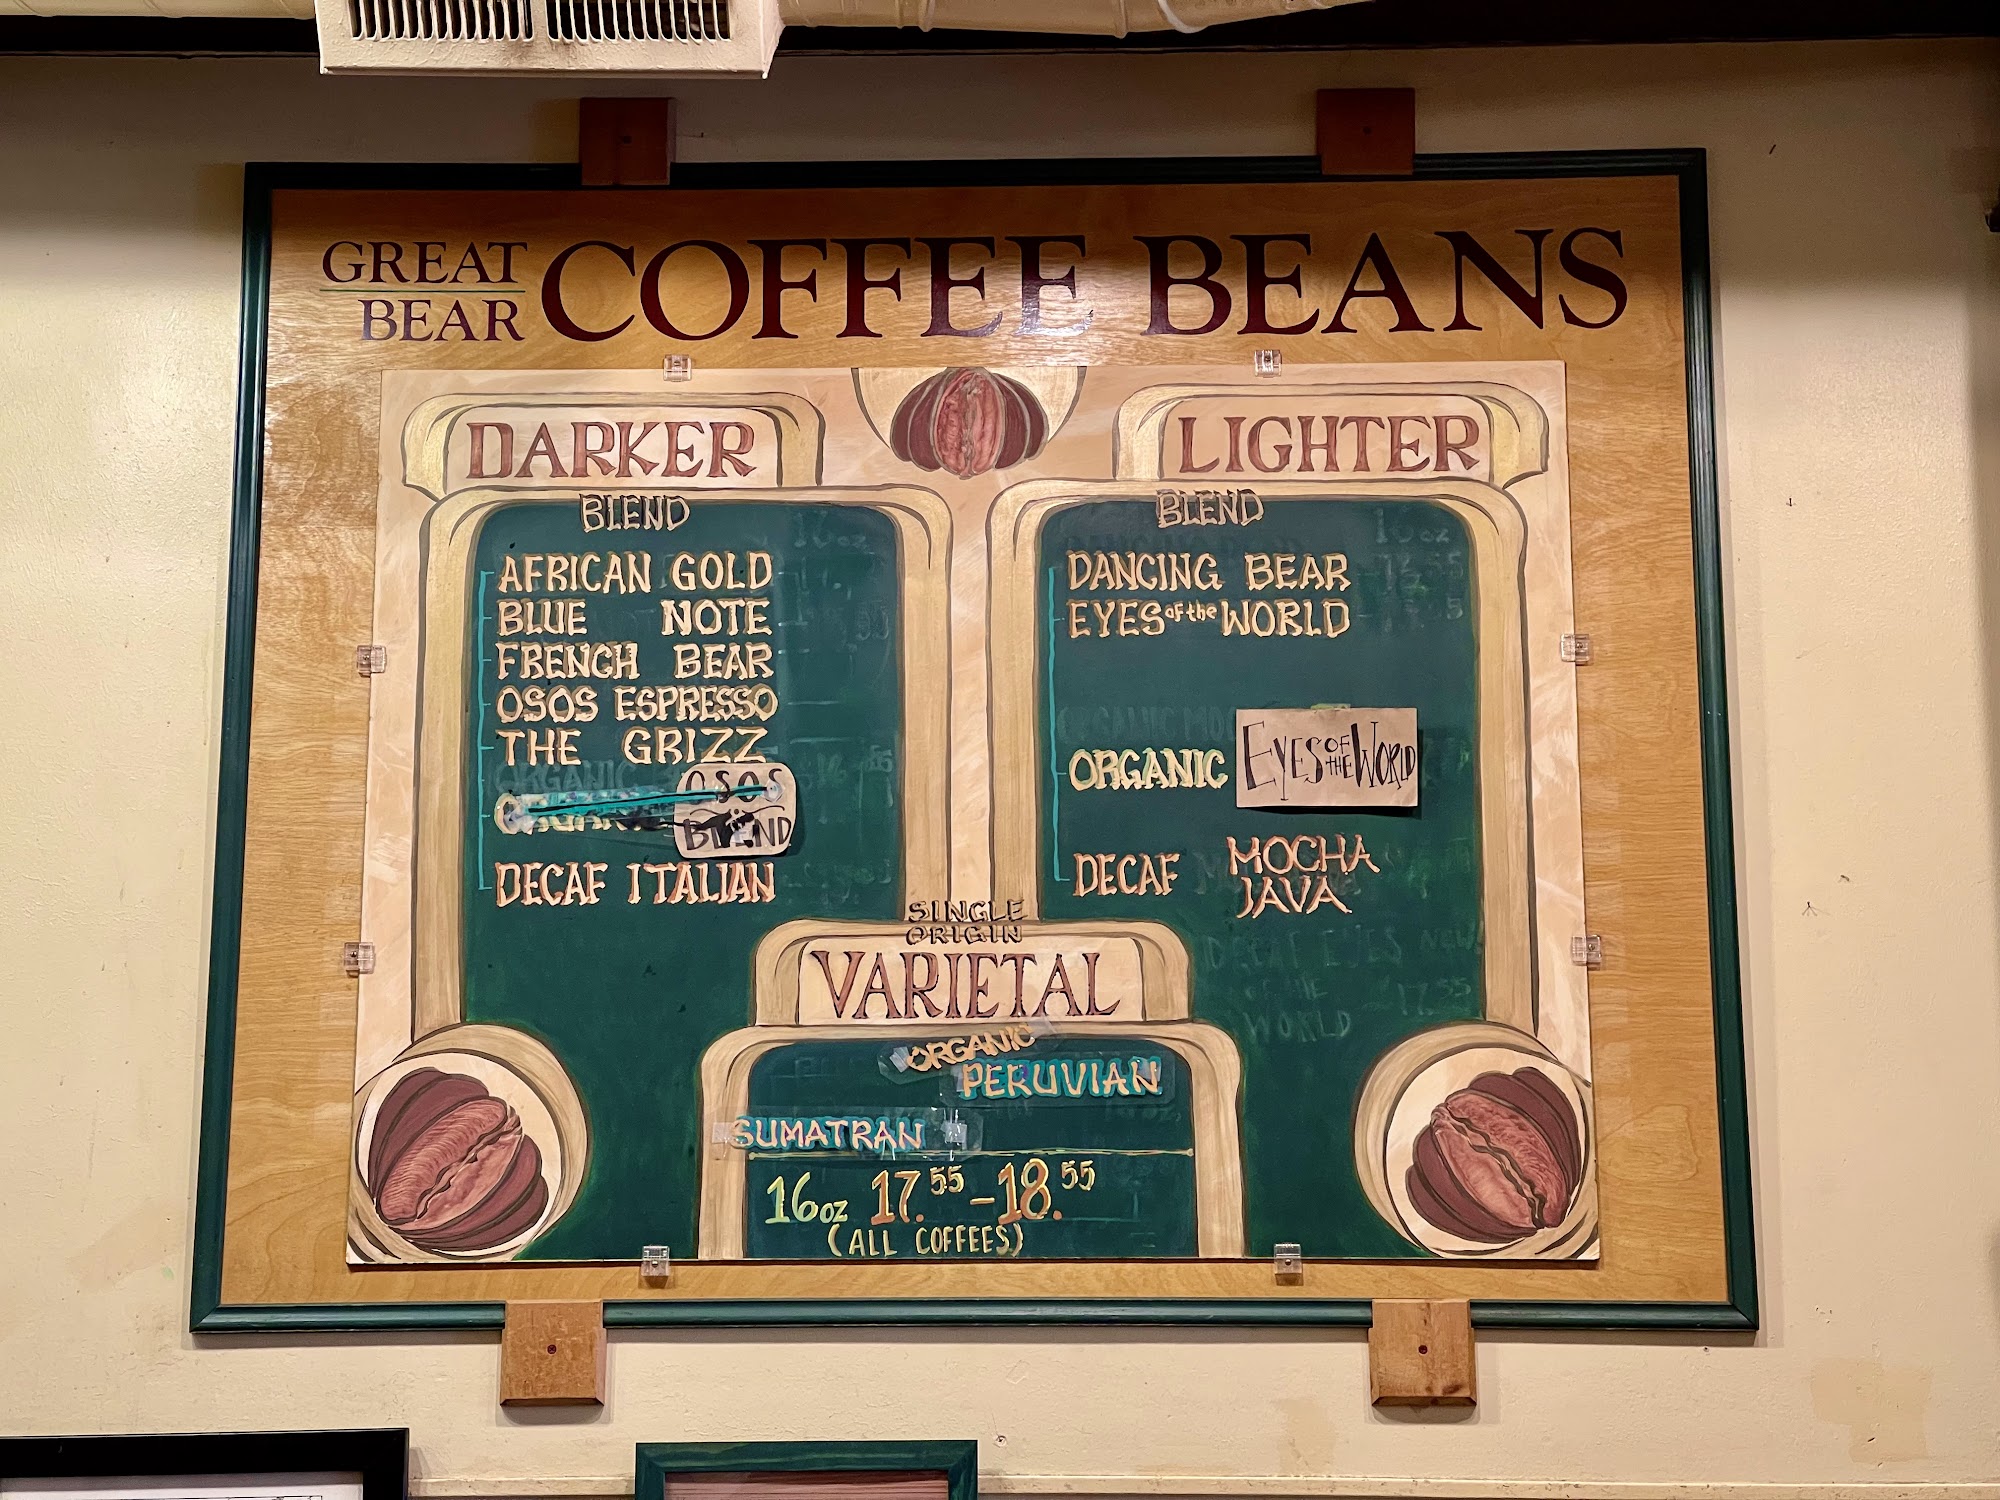 GREAT
BEAR
COFFEE BEANS
DARKER
BLEND
AFRICAN GOLD
BLUE NOTE
FRENCH BEAR
OSOS ESPRESSO
THE GRIZZ
ORGANIC
OSOS
BLEND
DECAF ITALIAN
LIGHTER
BLEND
16oz
DANCING BEAR
EYES of the WORLD
ORGANIC EYES OF THE WORLD
DECAF MOCHA
JAVA
DECAF EYES NEW
OF THE 17.55
WORLD
SINGLE
ORIGIN
VARIETAL
ORGANIC
PERUVIAN
SUMATRAN
16oz 17.55 - 18.55
(ALL COFFEES)